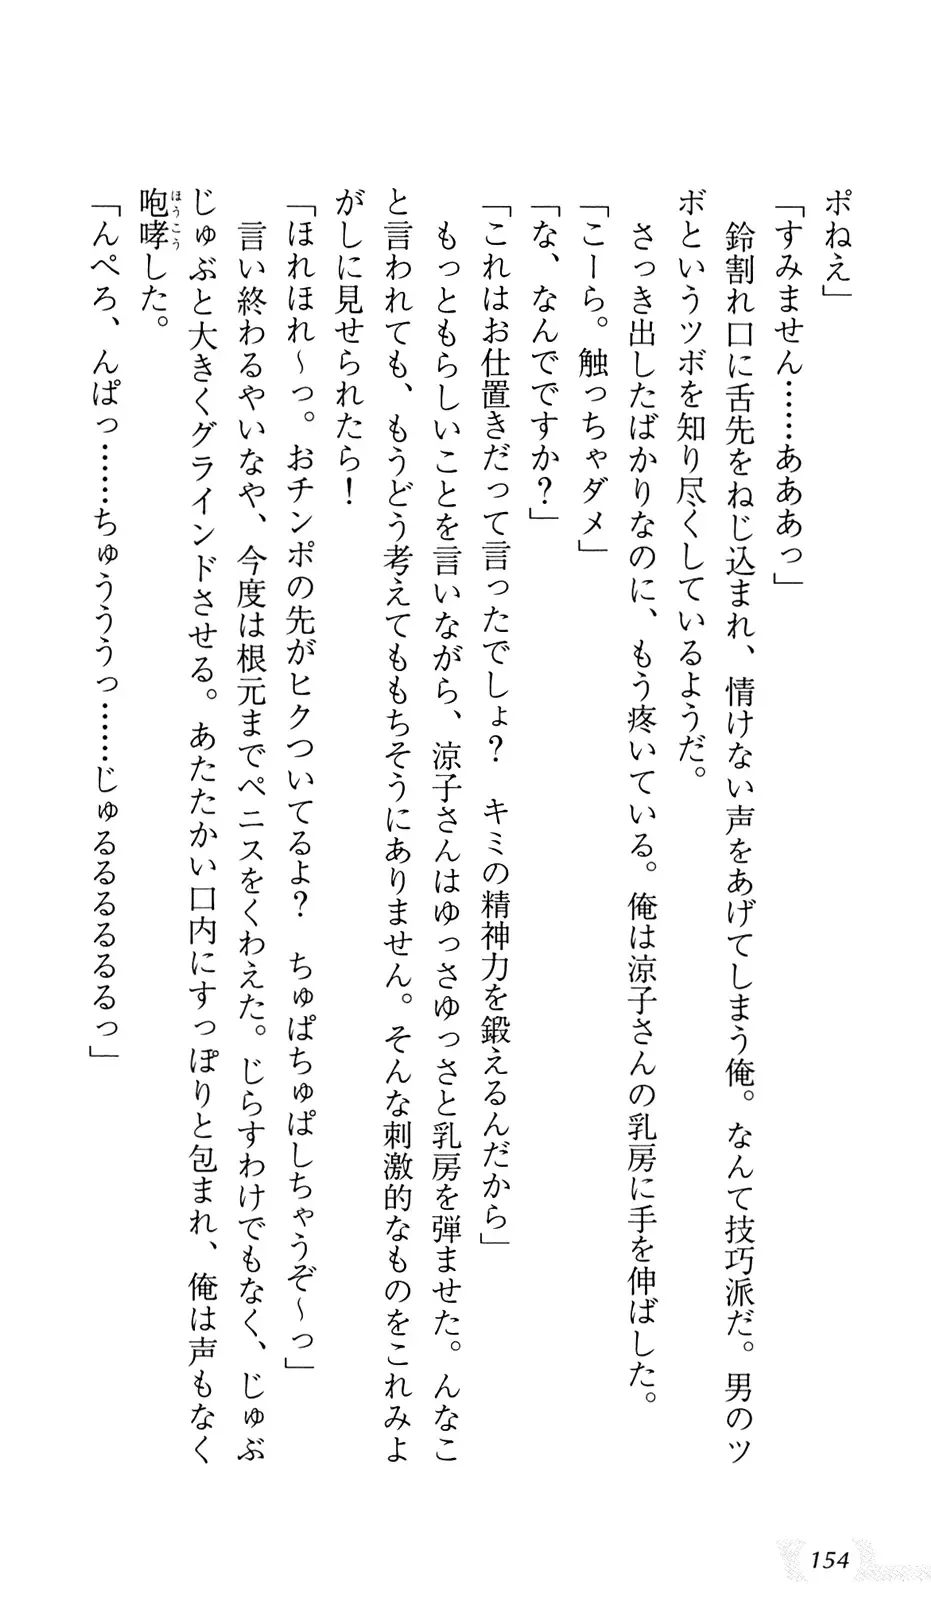 ポねえ」
「すみません……あああっ」
　鈴割れ口に舌先をねじ込まれ、情けない声をあげてしまう俺。なんて技巧派だ。男のツ
ボというツボを知り尽くしているようだ。
　さっき出したばかりなのに、もう疼いている。俺は涼子さんの乳房に手を伸ばした。
「こーら。触っちゃダメ」
「な、なんでですか？」
「これはお仕置きだって言ったでしょ？　キミの精神力を鍛えるんだから」
　もっともらしいことを言いながら、涼子さんはゆっさゆっさと乳房を弾ませた。んなこ
と言われても、もうどう考えてももちそうにありません。そんな刺激的なものをこれみよ
がしに見せられたら！
「ほれほれ～っ。おチンポの先がヒクついてるよ？　ちゅぱちゅぱしちゃうぞ～っ」
　言い終わるやいなや、今度は根元までペニスをくわえた。じらすわけでもなく、じゅぶ
じゅぶと大きくグラインドさせる。あたたかい口内にすっぽりと包まれ、俺は声もなく
咆哮ほうこうした。
「んぺろ、んぱっ……ちゅううっ……じゅるるるるるっ」
154